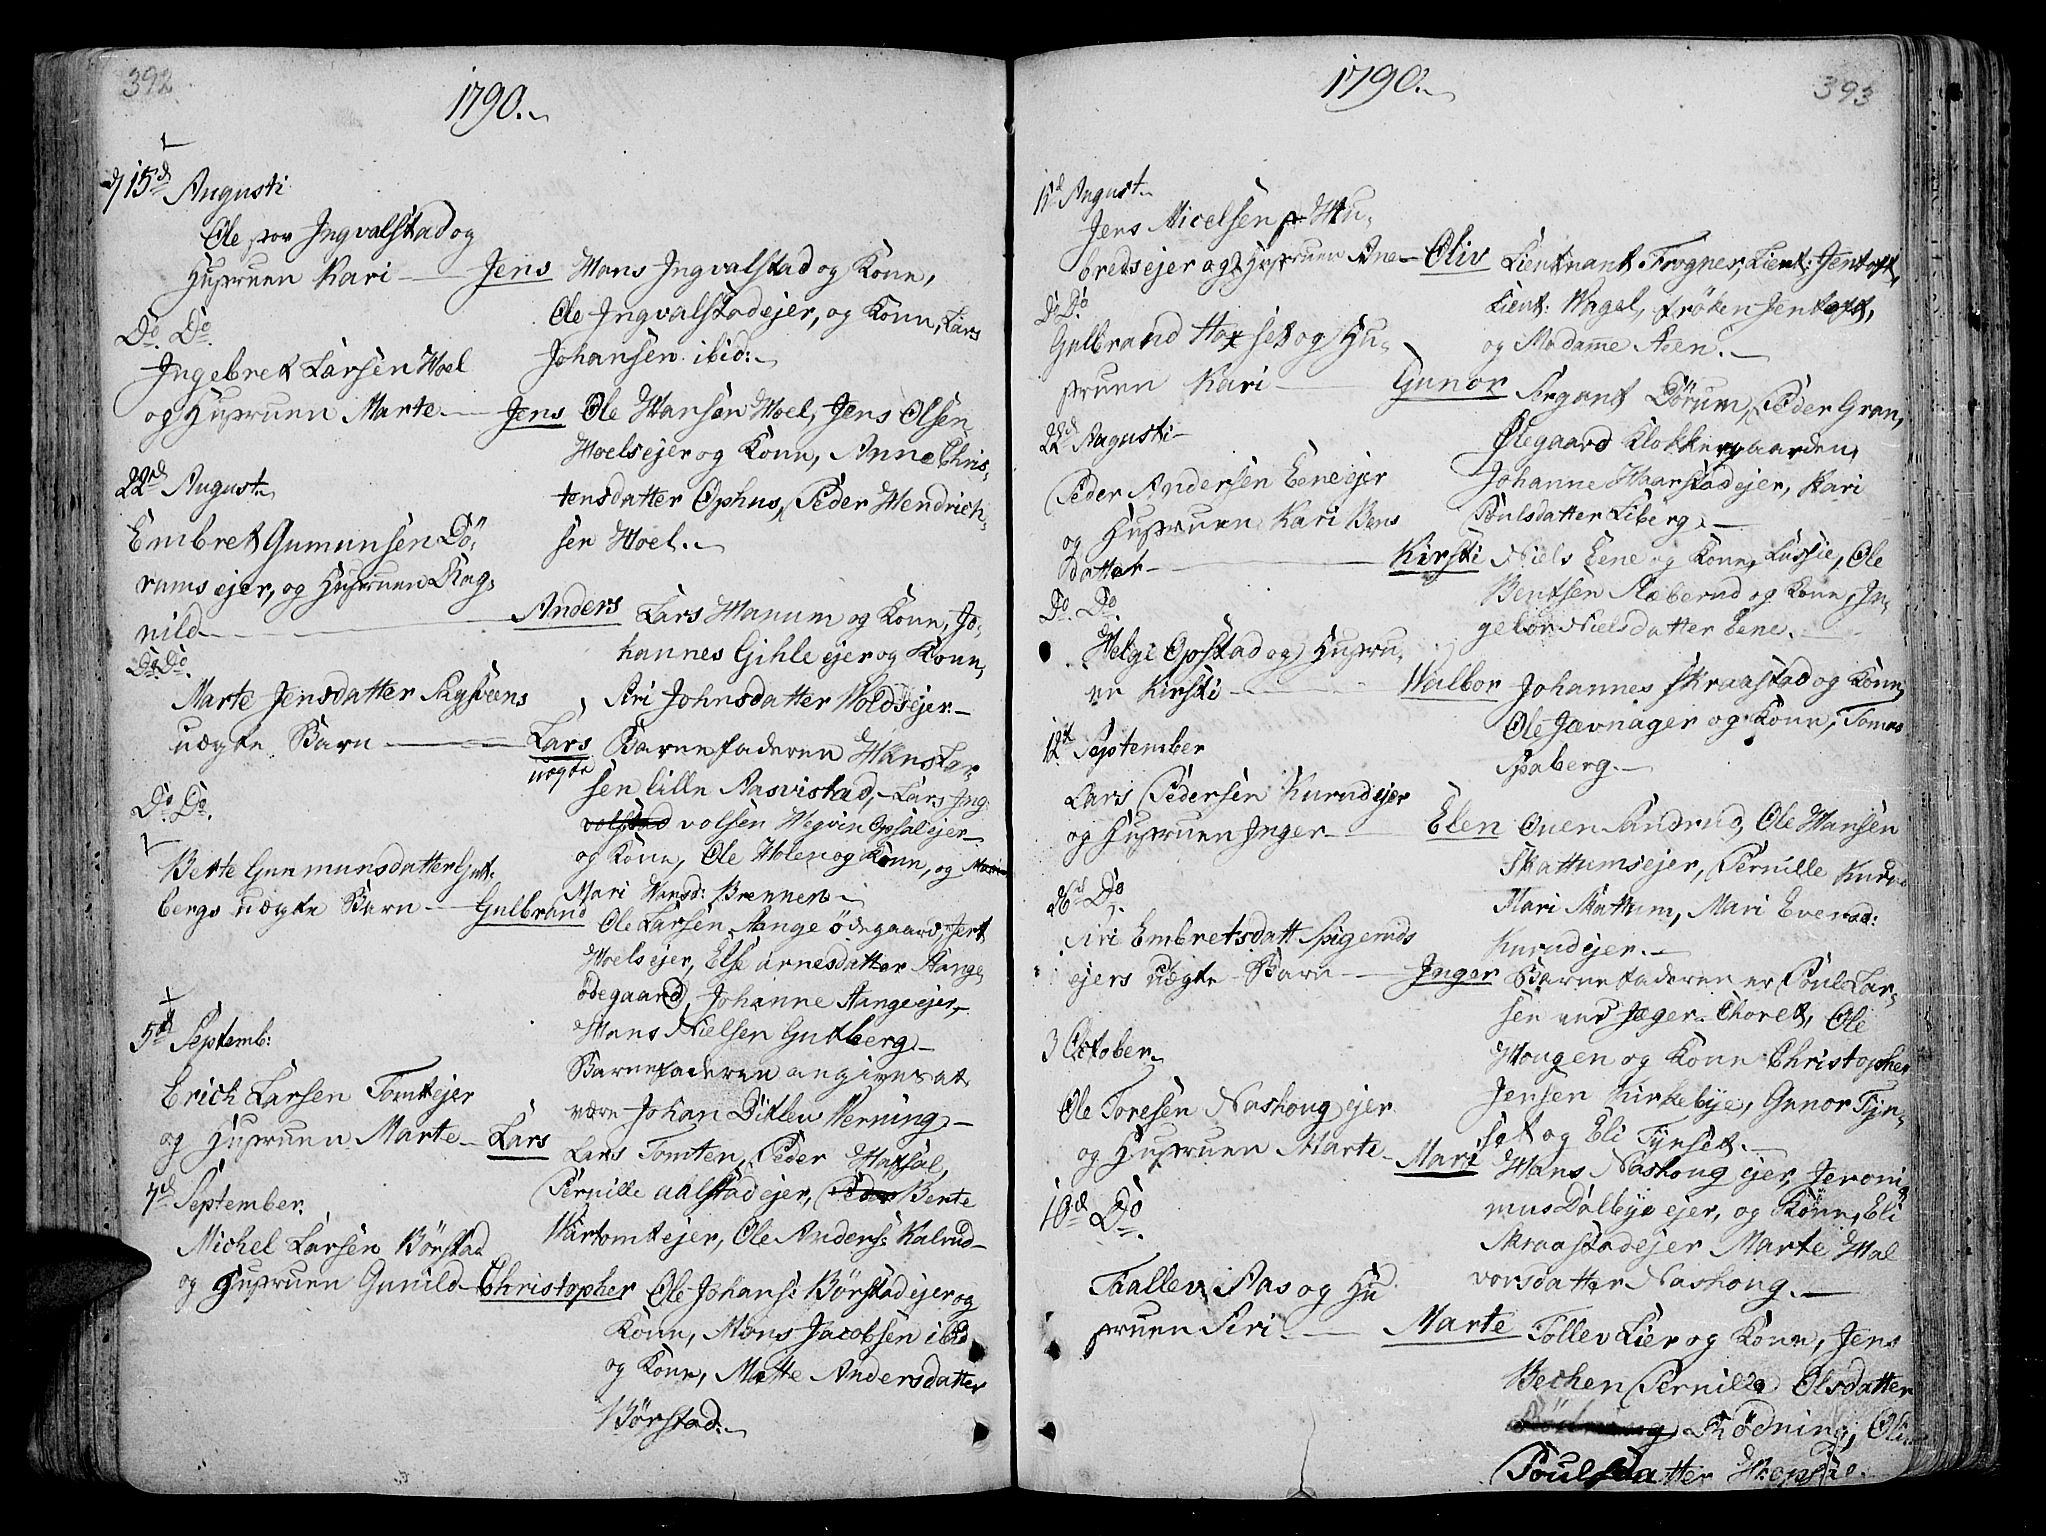 392
1790.
d 15d Augusti
Ole por Ingvalstad og
Hustruen Kari — Jens Hans Ingvalstad og Kone,
Ole Ingvalstadejer, og Kone, Lars
Johansen ibid:
Do. Do.
Ingebret Larsen Hoel
og Hustruen Marte — Jens Ole Hansen Hoel, Jens Olsen
Hoelsejer og Kone, Anne Chris-
tensdatter Ophus, Peder Hendrich-
sen Hoel.
22d August
Embret Gumunsen Dö-
rumsejer, og Hustruen Rag-
nild — Anders Lars Manum og Kone, Jo-
hannes Gihle ejer og Kone,
Siri Johnsdatter Woldsejer.
Do. Do.
Marte Jensdatter Sagsveens
uægte Barn — Lars uægte Barnefaderen Hans Lar-
sen lille Aasvistad, Lars Ing-
volsen Hegvin Opsalejer
og Kone, Ole Holen og Kone, og
Mari Hansd: Brennen
Do. Do.
Berte Gunmunsdatter Gut-
bergs uægte Barn — Gulbrand
Ole Larsen Aange ödegaard, Gert
Hoelsejer, Else arnesdatter Aange
ödegaard, Johanne Aangeejer,
Hans Nielsen Gutberg
Barnefaderen angives at
være Johan Ditlev Werning
5d Septemb:
Erich Larsen Tomtejer
og Hustruen Marte — Lars
Lars Tomten, Peder Hafsal,
Pernille aalstadejer, Berte
Kartomtejer, Ole Anders: Kalrud
7d September.
Michel Larsen Börstad
og Hustruen Gunild — Christopher Ole Johans: Börstadejer og
Kone, Mons Jacobsen ibid
og Kone, Mette Andersdatter
Börstad.
393
1790.
15d August
Jens Nicelsen Hu-
bredsejer og Hustruen Ane — Oliv Lieutnant Frogner, Lieut: Jentoft,
Lieut: Wagel, fröken Jentoft,
og Madame Aaen.
Do Do.
Gulbrand Hoxset og Hu-
struen Kari — Gunor Sergant Dörum, Peder Gran,
Ølegaard Klokkergaarden,
Johanne Haarstadejer, Kari
Poulsdatter Liberg.
22d Augusti
Peder Andersen Eeneejer
og Hustruen Kari Bens
datter — Kirsti Niels Eene og Kone, Lussie, Ole
Bentsen Ræberud og Kone, In-
gebor Nielsdatter Eene.
Do. Do
Helge Opstad og Hustru-
en Kirsti — Walbor Johannes Skraastad og Kone,
Ole Jævnager og Kone, Tomas
Spaberg.
12d September
Lars Pedersen Kurudejer
og Hustruen Inger — Elen Ouen Sandrud, Ole Hansen
Skattumsejer, Pernille Kurud
Mari Skattum, Mari Evensd:
Kurudejer.
26d Do.
Siri Embretsdatt Spigeruds
ejers uægte Barn — Inger Barnefaderen er Poul Lar-
sen ved Jæger. Choret, Ole
Hougen og Kone Christopher
Jensen Kirkebye, Gunor Tyn-
set og Eli Tynset.
3 October
Ole Toresen Nashougejer
og Hustruen Marte — Mari Hans Nashougejer, Jeroni-
mus Dalbyeejer, og Kone, Eli
Skraastadejer Marte Hal
vorsdatter Nashoug.
10d Do.
Taallev Aas og Hu
struen Siri — Marte Tollev Lier og Kone, Jens
Bechen Pernille Olsdatter
Rödning, Oli
Poulsdatter Hopsal.